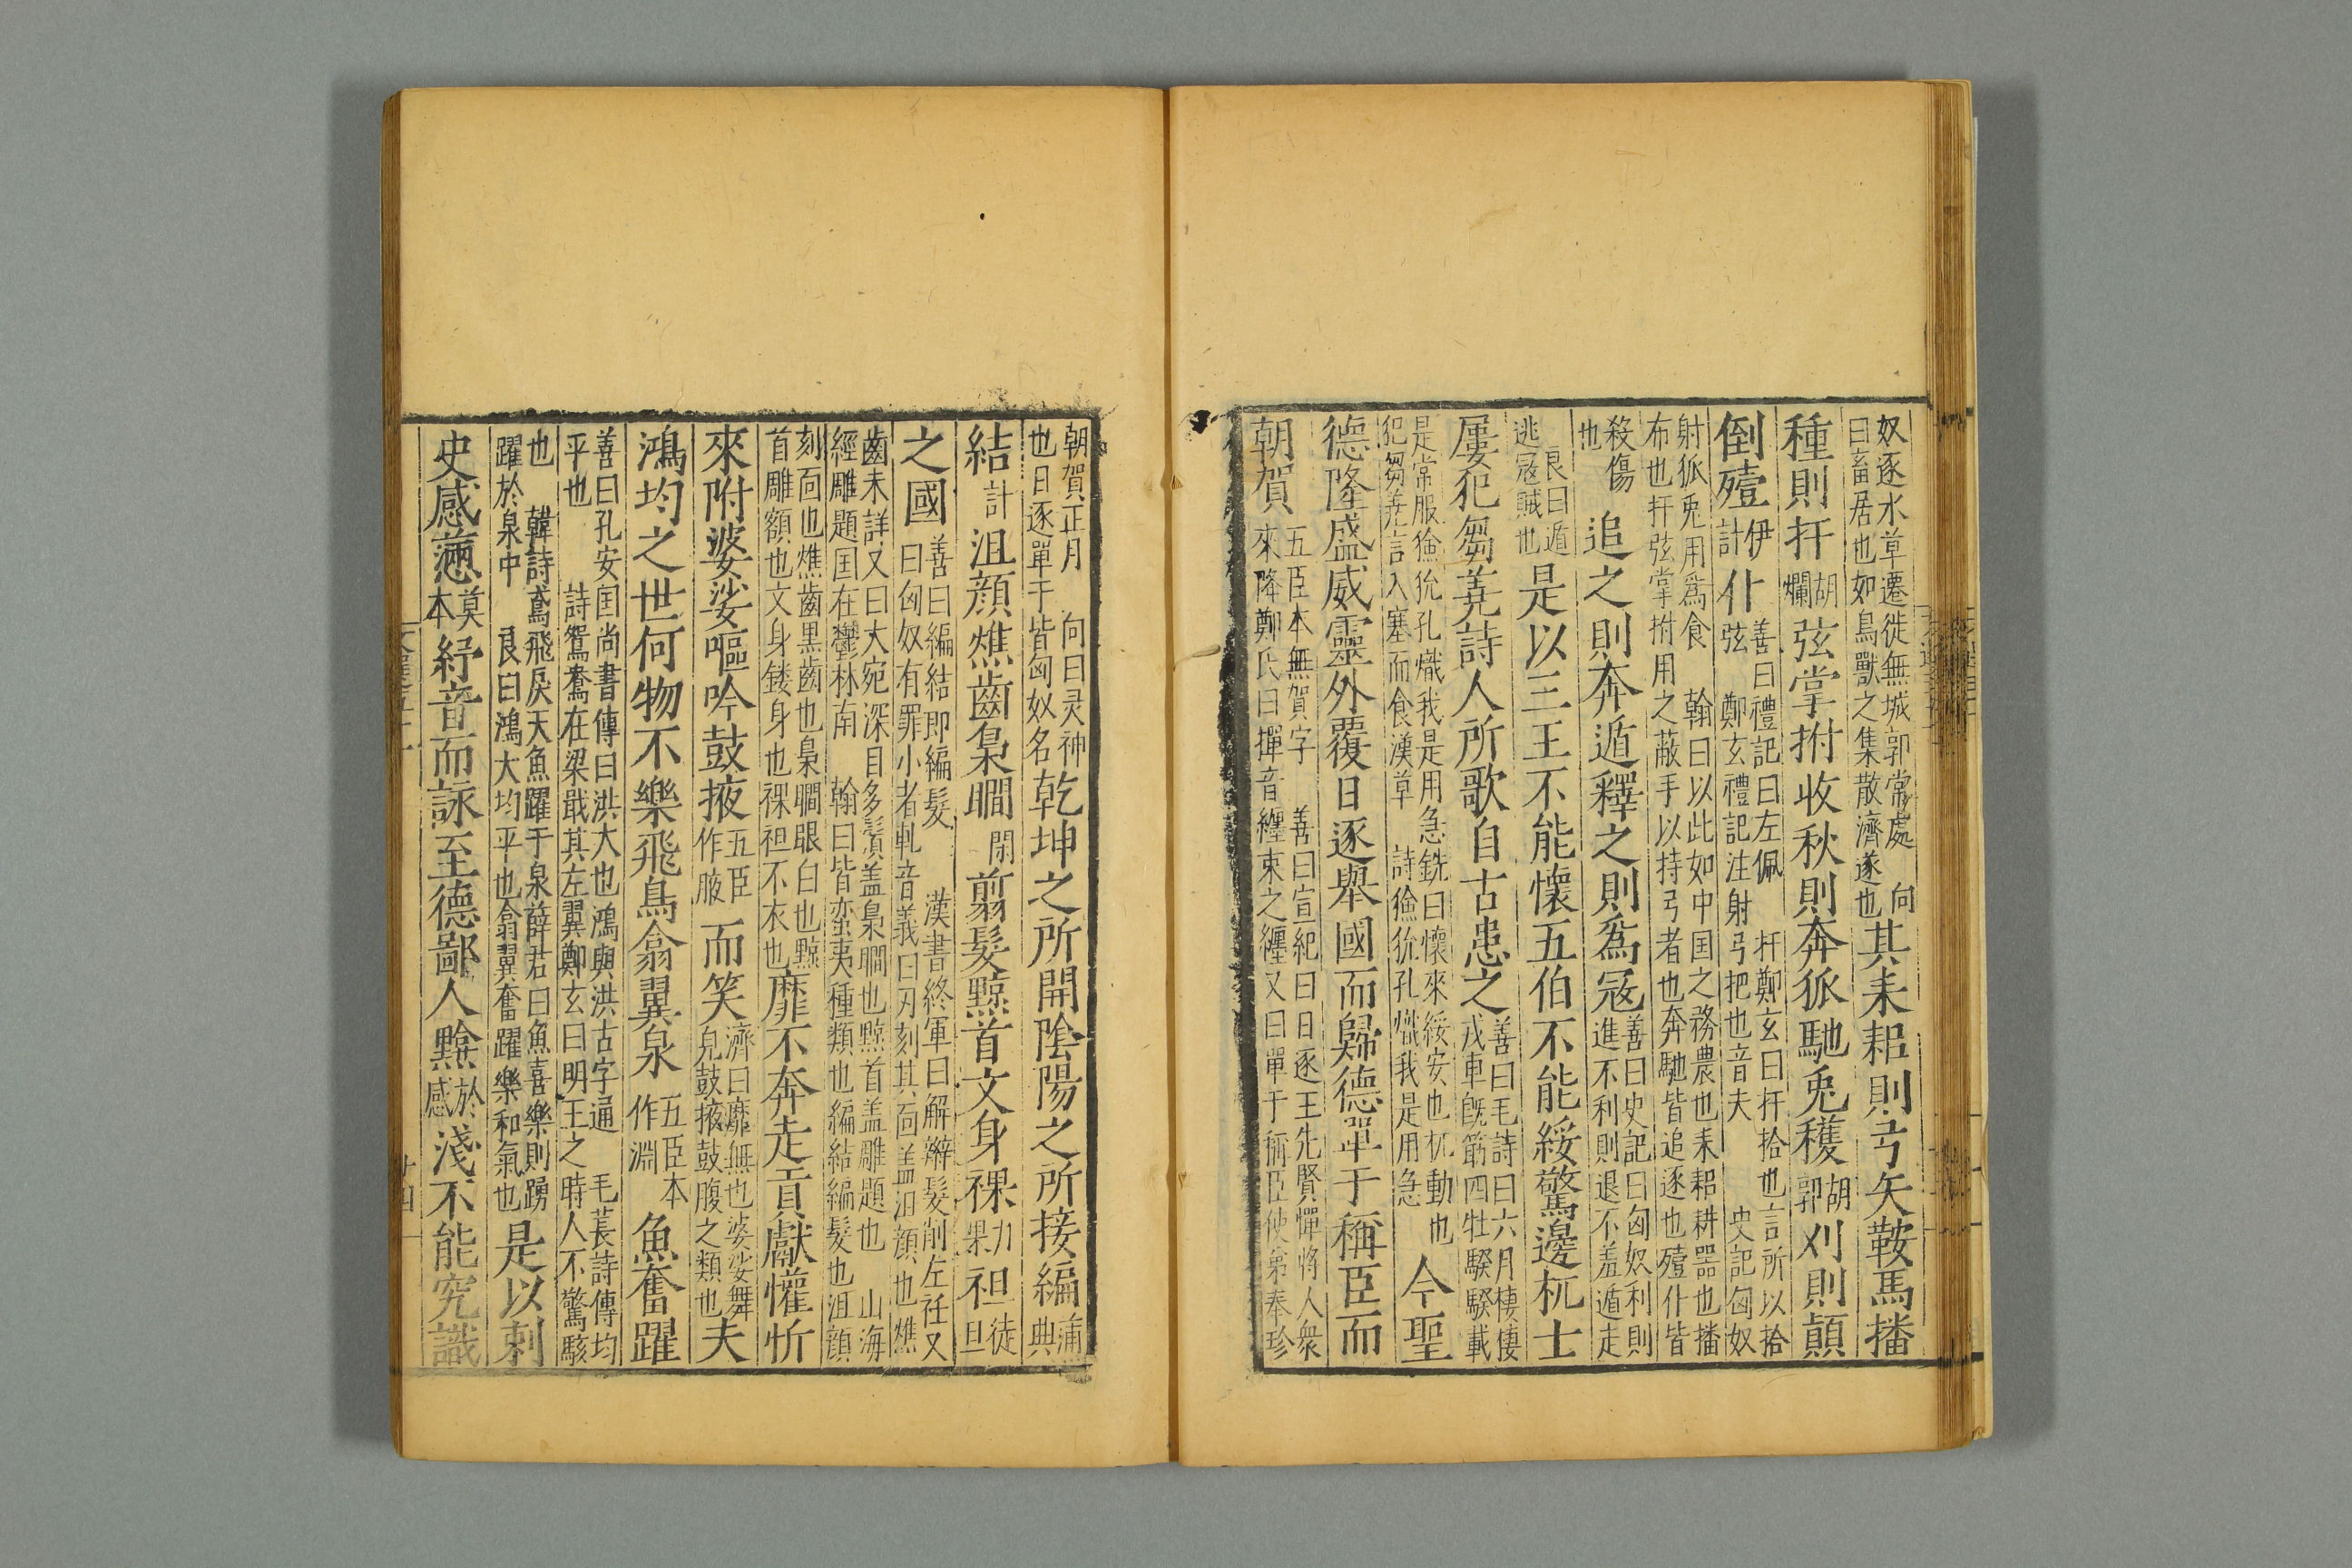 奴逐水草遷徙無城郭常處　向
曰畜居也如鳥獸之集散濟遂也
其耒耜則弓矢鞍馬播
種則扞
胡
爛
弦掌拊收秋則奔狐馳兎穫
胡
郭
刈則顛
倒殪
伊
計
仆
善曰禮記曰左佩　扞鄭玄曰扞拾也言所以拾
弦　鄭玄禮記注射弓把也音夫　史記匈奴
射狐兎用爲食　翰曰以此如中囯之務農也耒耜耕噐也播
布也扞弦掌拊用之蔽手以持弓者也奔馳皆追逐也殪仆皆
殺傷
也
追之則奔遁釋之則爲冦
善曰史記曰匈奴利則
進不利則退不羞遁走
良曰遁
逃冦賊也
是以三王不能懷五伯不能綏驚邊杌士
屢犯芻蕘詩人所歌自古患之
善曰毛詩曰六月棲倢
戎車旣飭四牡騤騤載
是常服獫狁孔熾我是用急銑曰懷來綏安也杌動也
犯芻蕘言入塞而食漢草　詩獫狁孔熾我是用急
今聖
德隆盛威靈外覆日逐舉國而歸德單于稱臣而
朝賀
五臣本無賀字　善曰宣紀曰日逐王先賢憚將人衆
來降鄭氏曰揮音纏束之纏又曰單于稱臣使弟奉珍
朝賀正月　向曰灵神
也日逐單于皆匈奴名
乾坤之所開隂陽之所接編
蒲
典
結
計
沮顔燋齒梟瞷
閑
翦髮黥首文身裸
力
果
袒
徒
旦
之國
善曰編結即編髮　漢書終軍曰解辮髮削左衽又
曰匈奴有罪小者軋音義曰刃刻其靣盖沮顔也燋
齒未詳又曰大宛深目多鬚盖梟瞷也黥首盖雕題也　山海
經雕題囯在鬱林南　翰曰皆蛮夷種類也編結編髮也沮顔
刻靣也燋齒黒齒也梟瞷眼白也黥
首雕額也文身鏤身也裸袒不衣也
靡不奔走貢獻懽忻
來附婆娑嘔吟鼓掖
五臣
作腋
而笑
濟曰靡無也婆娑舞
皃鼓掖鼓腹之類也
夫
鴻均之世何物不樂飛鳥翕翼泉
五臣本
作淵
魚奮躍
善曰孔安囯尚書傳曰洪大也鴻與洪古字通　毛萇詩傳均
平也　詩鴛鴦在梁戢其左翼鄭玄曰明王之時人不驚駭
也　韓詩鳶飛戾天魚躍于泉薛君曰魚喜樂則踴
躍於泉中　良曰鴻大均平也翕翼奮躍樂和氣也
是以刺
史感懣
莫
本
紓音而詠至德鄙人黭
於
感
淺不能究識